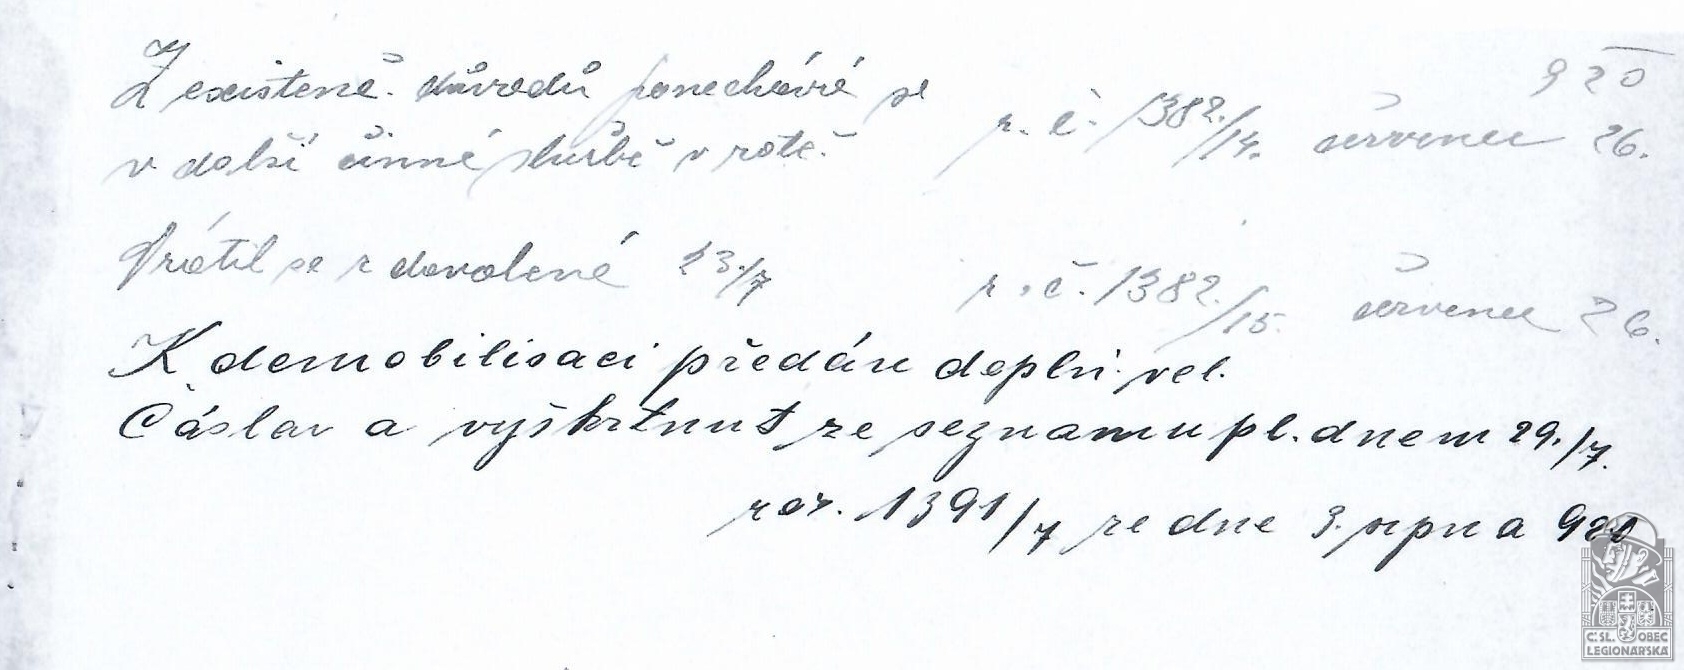 920
Z existenč. důvodů ponechává se
v další činné službě v rotě. r. č. 1382./14. červenec 26.
Vrátil se z dovolené 23./7 r. č. 1382./15. červenec 26.
K demobilisaci předán doplň. vel.
Čáslav a vyškrtnut ze seznamu pl. dnem 29./7.
roz. 1391/7 ze dne 3. srpna 920
Č.SL. OBEC
LEGIONÁŘSKÁ